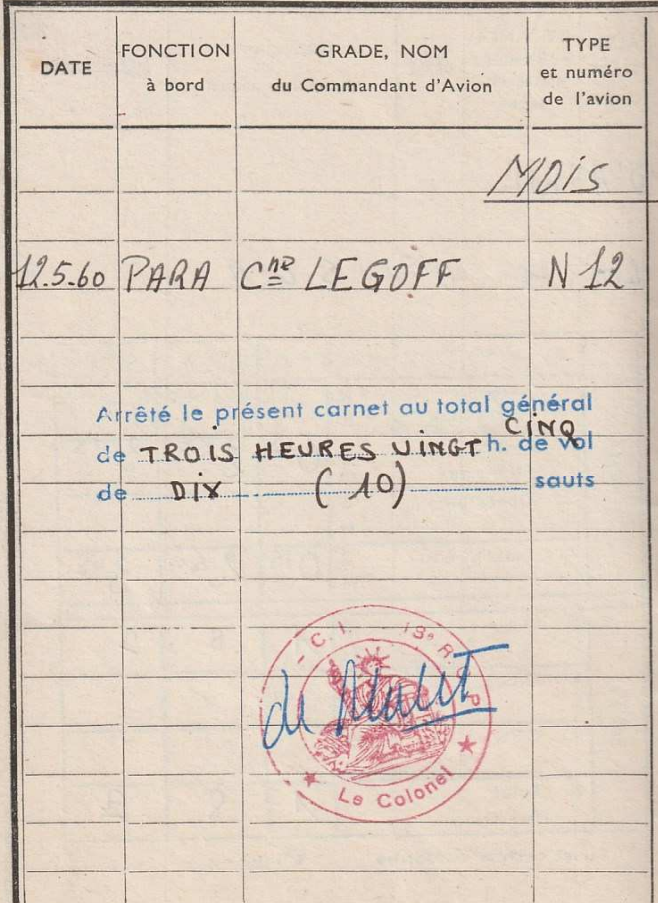 DATE
FONCTION
à bord
GRADE, NOM
du Commandant d'Avion
TYPE
et numéro
de l'avion
MOIS
12.5.60 PARA Cne LEGOFF N 12
Arrêté le présent carnet au total général
de TROIS HEURES VINGT CINQ h. de vol
de DIX (10) sauts
C.I. 13e R.
Le Colonel